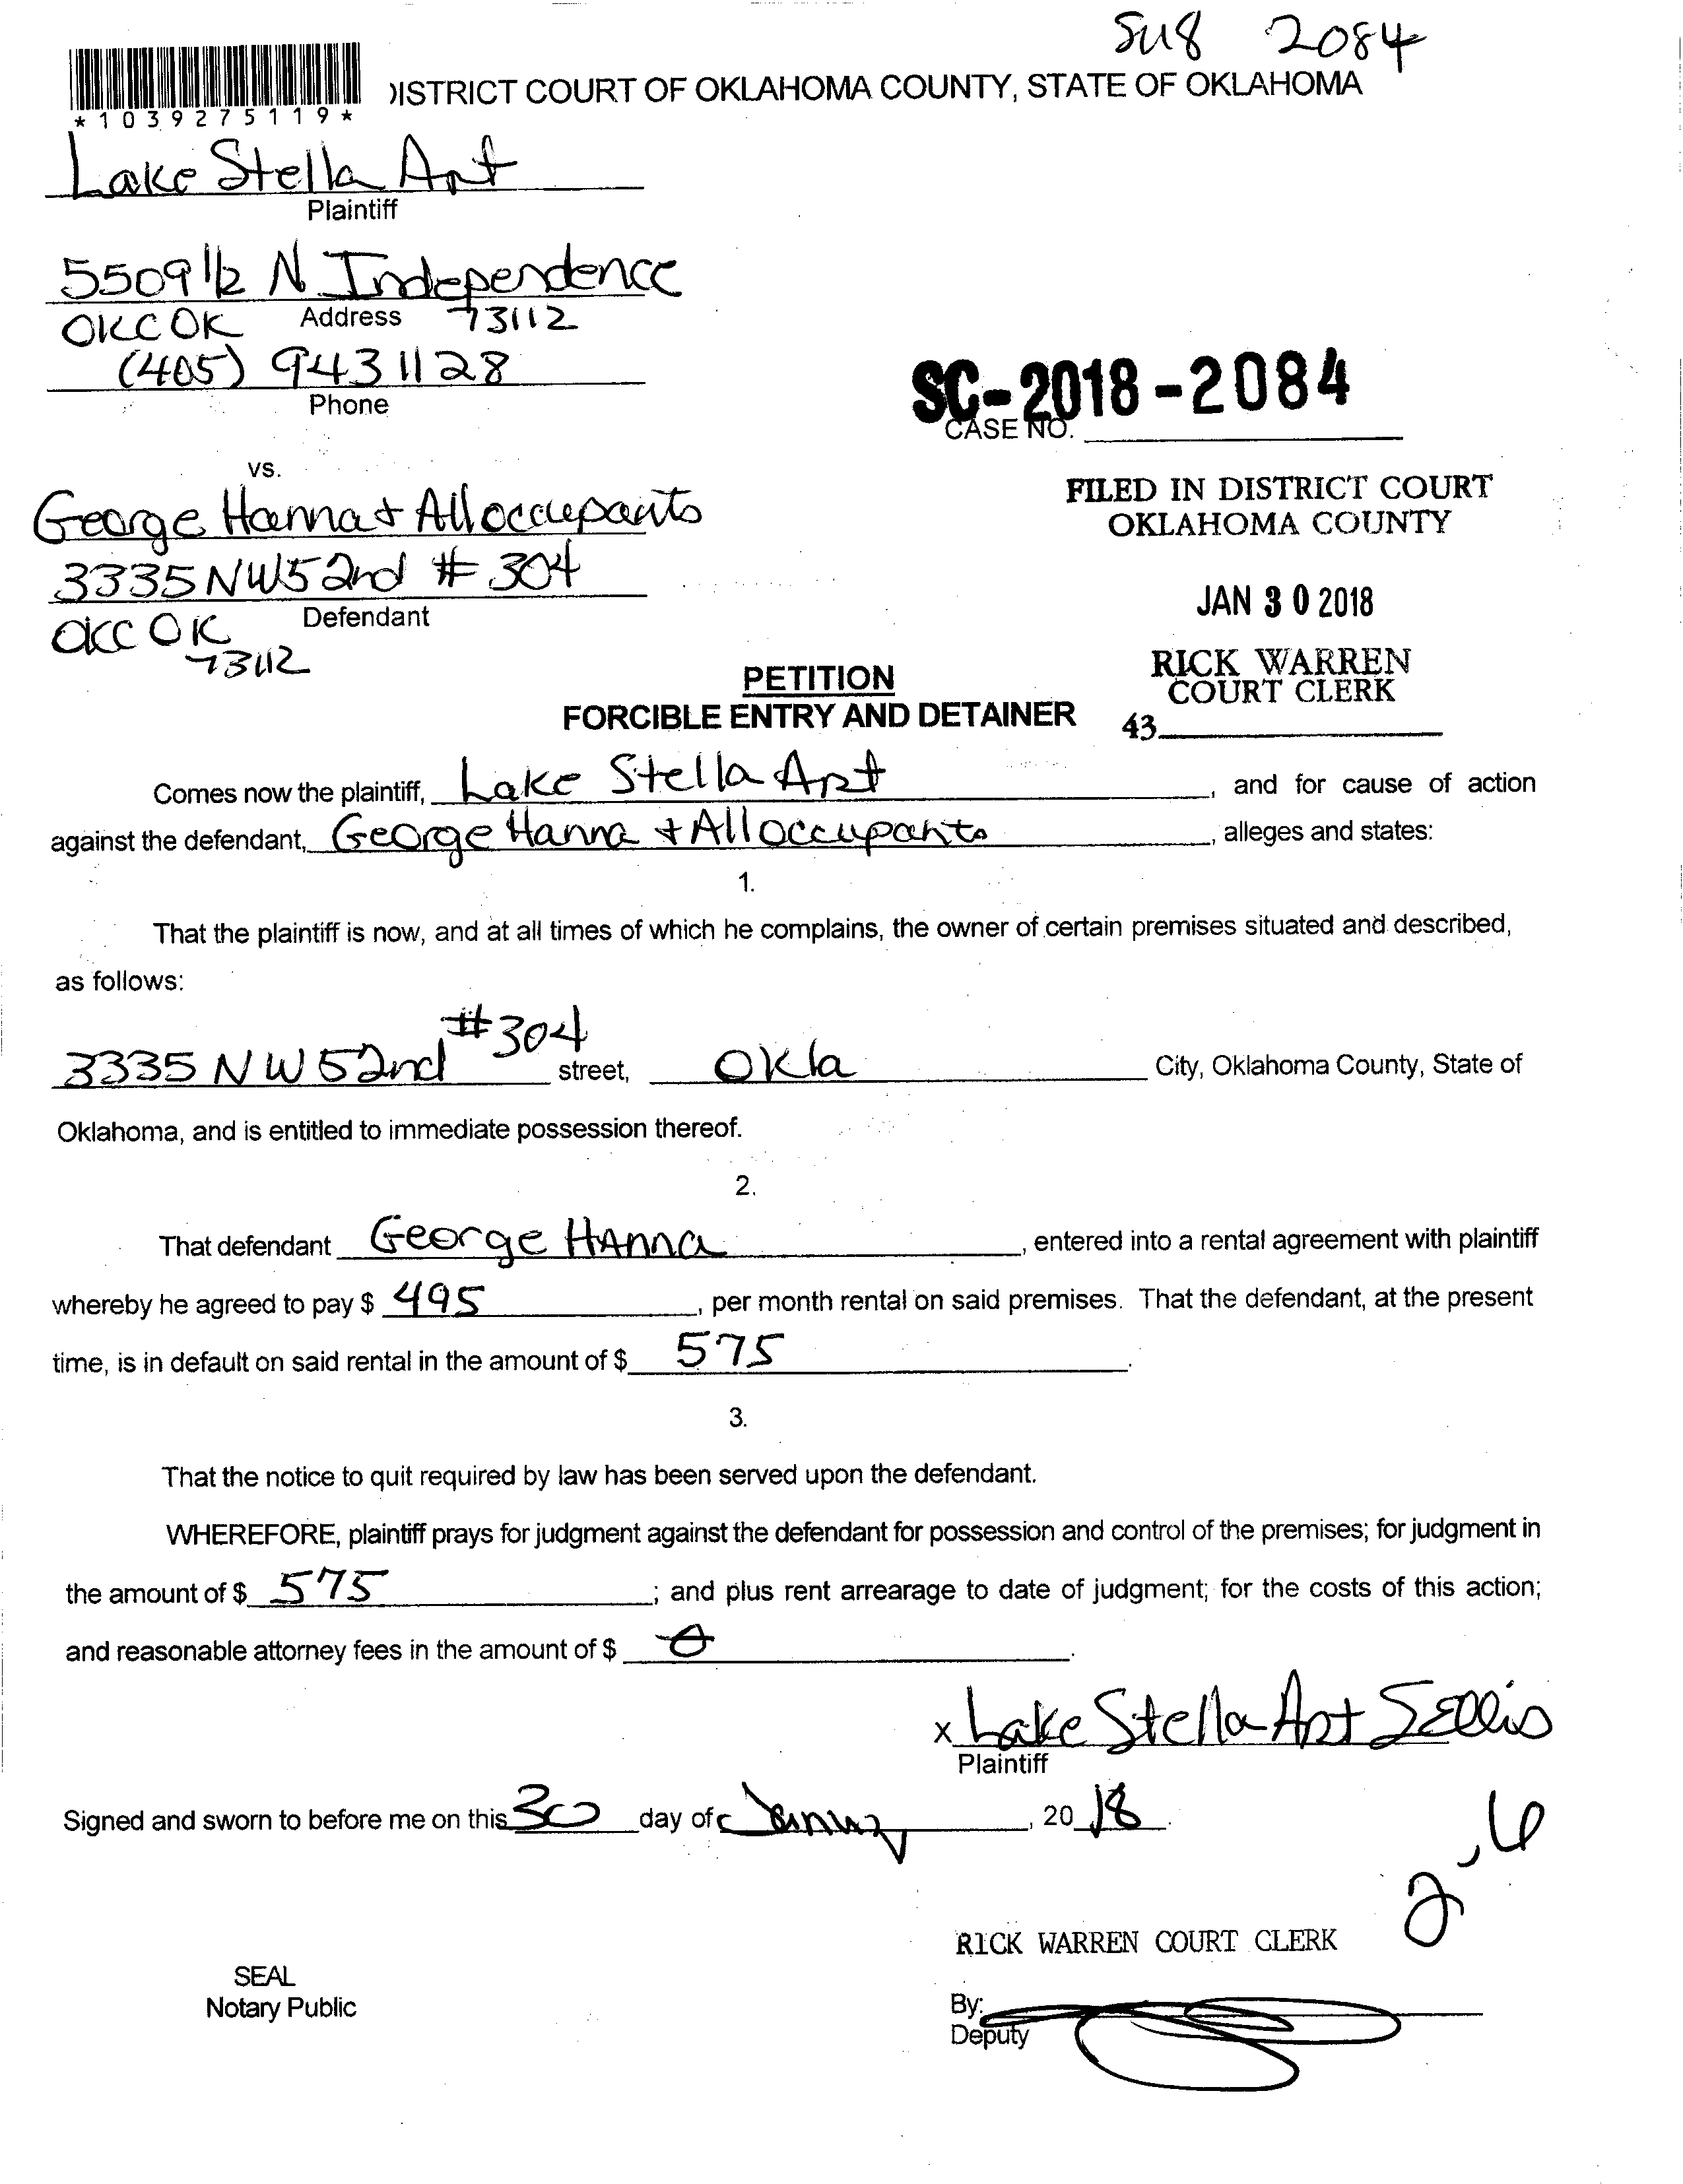 SU8 2084
DISTRICT COURT OF OKLAHOMA COUNTY, STATE OF OKLAHOMA
*1039275119*
Lake Stella Apt
Plaintiff
5509 1/2 N. Independence
Address
OKC OK 73112
(405) 943 1128
Phone
SC-2018-2084
CASE NO.
vs.
George Hanna + All occupants
3335 NW 52nd # 304
Defendant
OKC OK
73112
FILED IN DISTRICT COURT
OKLAHOMA COUNTY
JAN 30 2018
RICK WARREN
COURT CLERK
43
PETITION
FORCIBLE ENTRY AND DETAINER
Comes now the plaintiff, Lake Stella Apt, and for cause of action
against the defendant, George Hanna + All occupants, alleges and states:
1.
That the plaintiff is now, and at all times of which he complains, the owner of certain premises situated and described,
as follows:
3335 NW 52nd #304 street, Okla City, Oklahoma County, State of
Oklahoma, and is entitled to immediate possession thereof.
2.
That defendant George HAnna, entered into a rental agreement with plaintiff
whereby he agreed to pay $ 495, per month rental on said premises. That the defendant, at the present
time, is in default on said rental in the amount of $ 575.
3.
That the notice to quit required by law has been served upon the defendant.
WHEREFORE, plaintiff prays for judgment against the defendant for possession and control of the premises; for judgment in
the amount of $ 575; and plus rent arrearage to date of judgment; for the costs of this action;
and reasonable attorney fees in the amount of $ 0.
x Lake Stella Apt SEllis
Plaintiff
Signed and sworn to before me on this 30 day of January, 20 18.
RICK WARREN COURT CLERK
SEAL
Notary Public
By:
Deputy